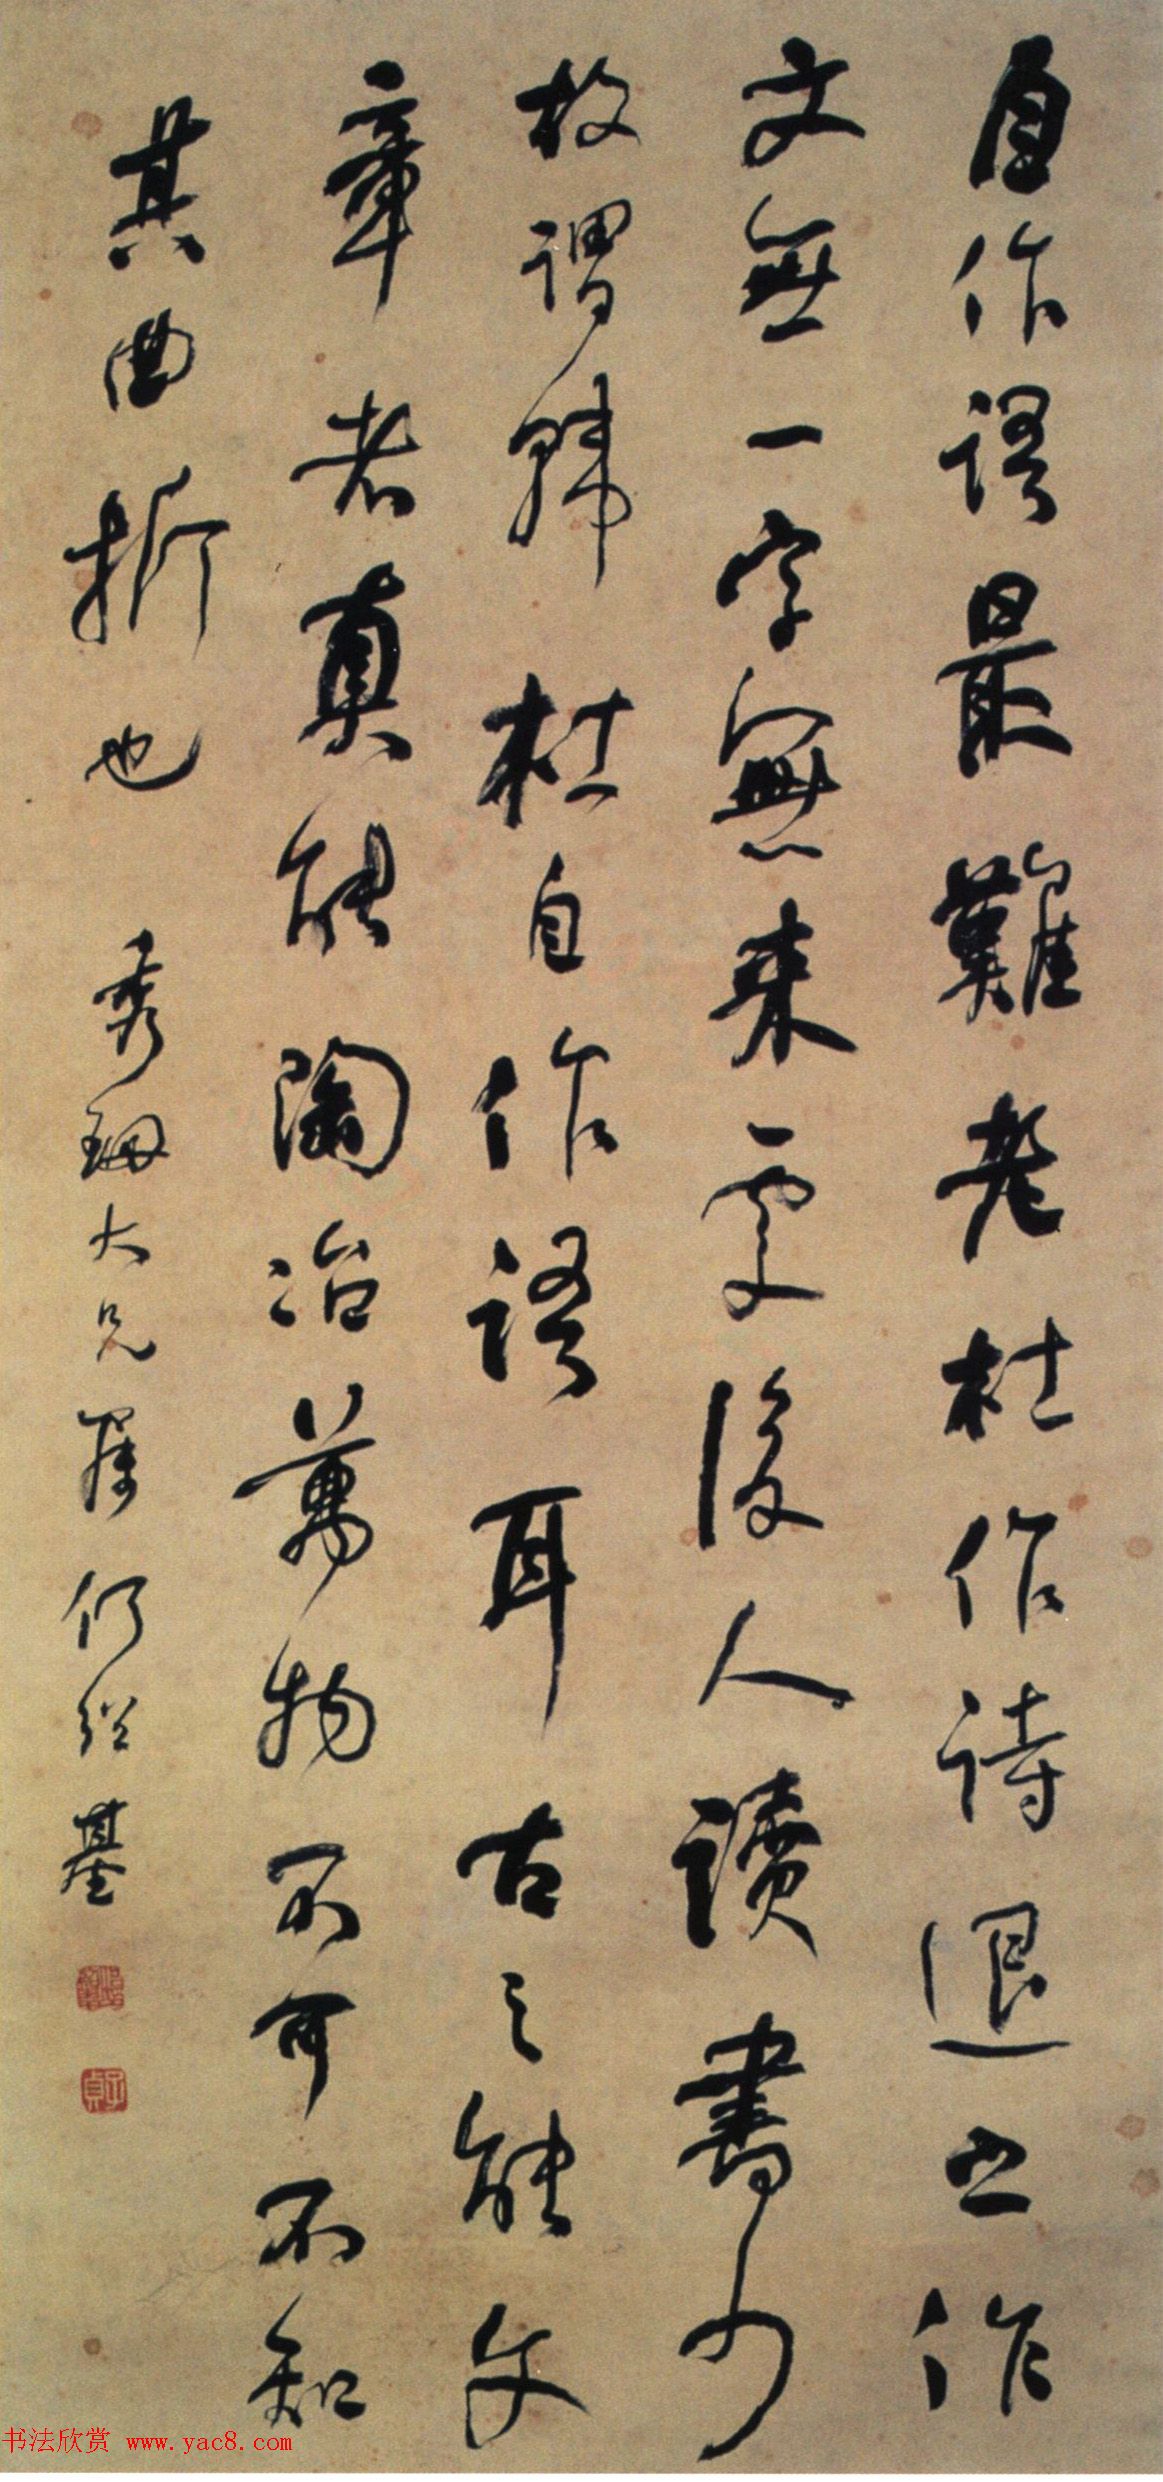 自作語最難老杜作詩退之作
文無一字無來處後人讀書少
故謂韓杜自作語耳古之能文
章者真能陶冶萬物不可不知
其曲折也 秀珊大兄屬 何紹基
子貞
书法欣赏 www.yac8.com